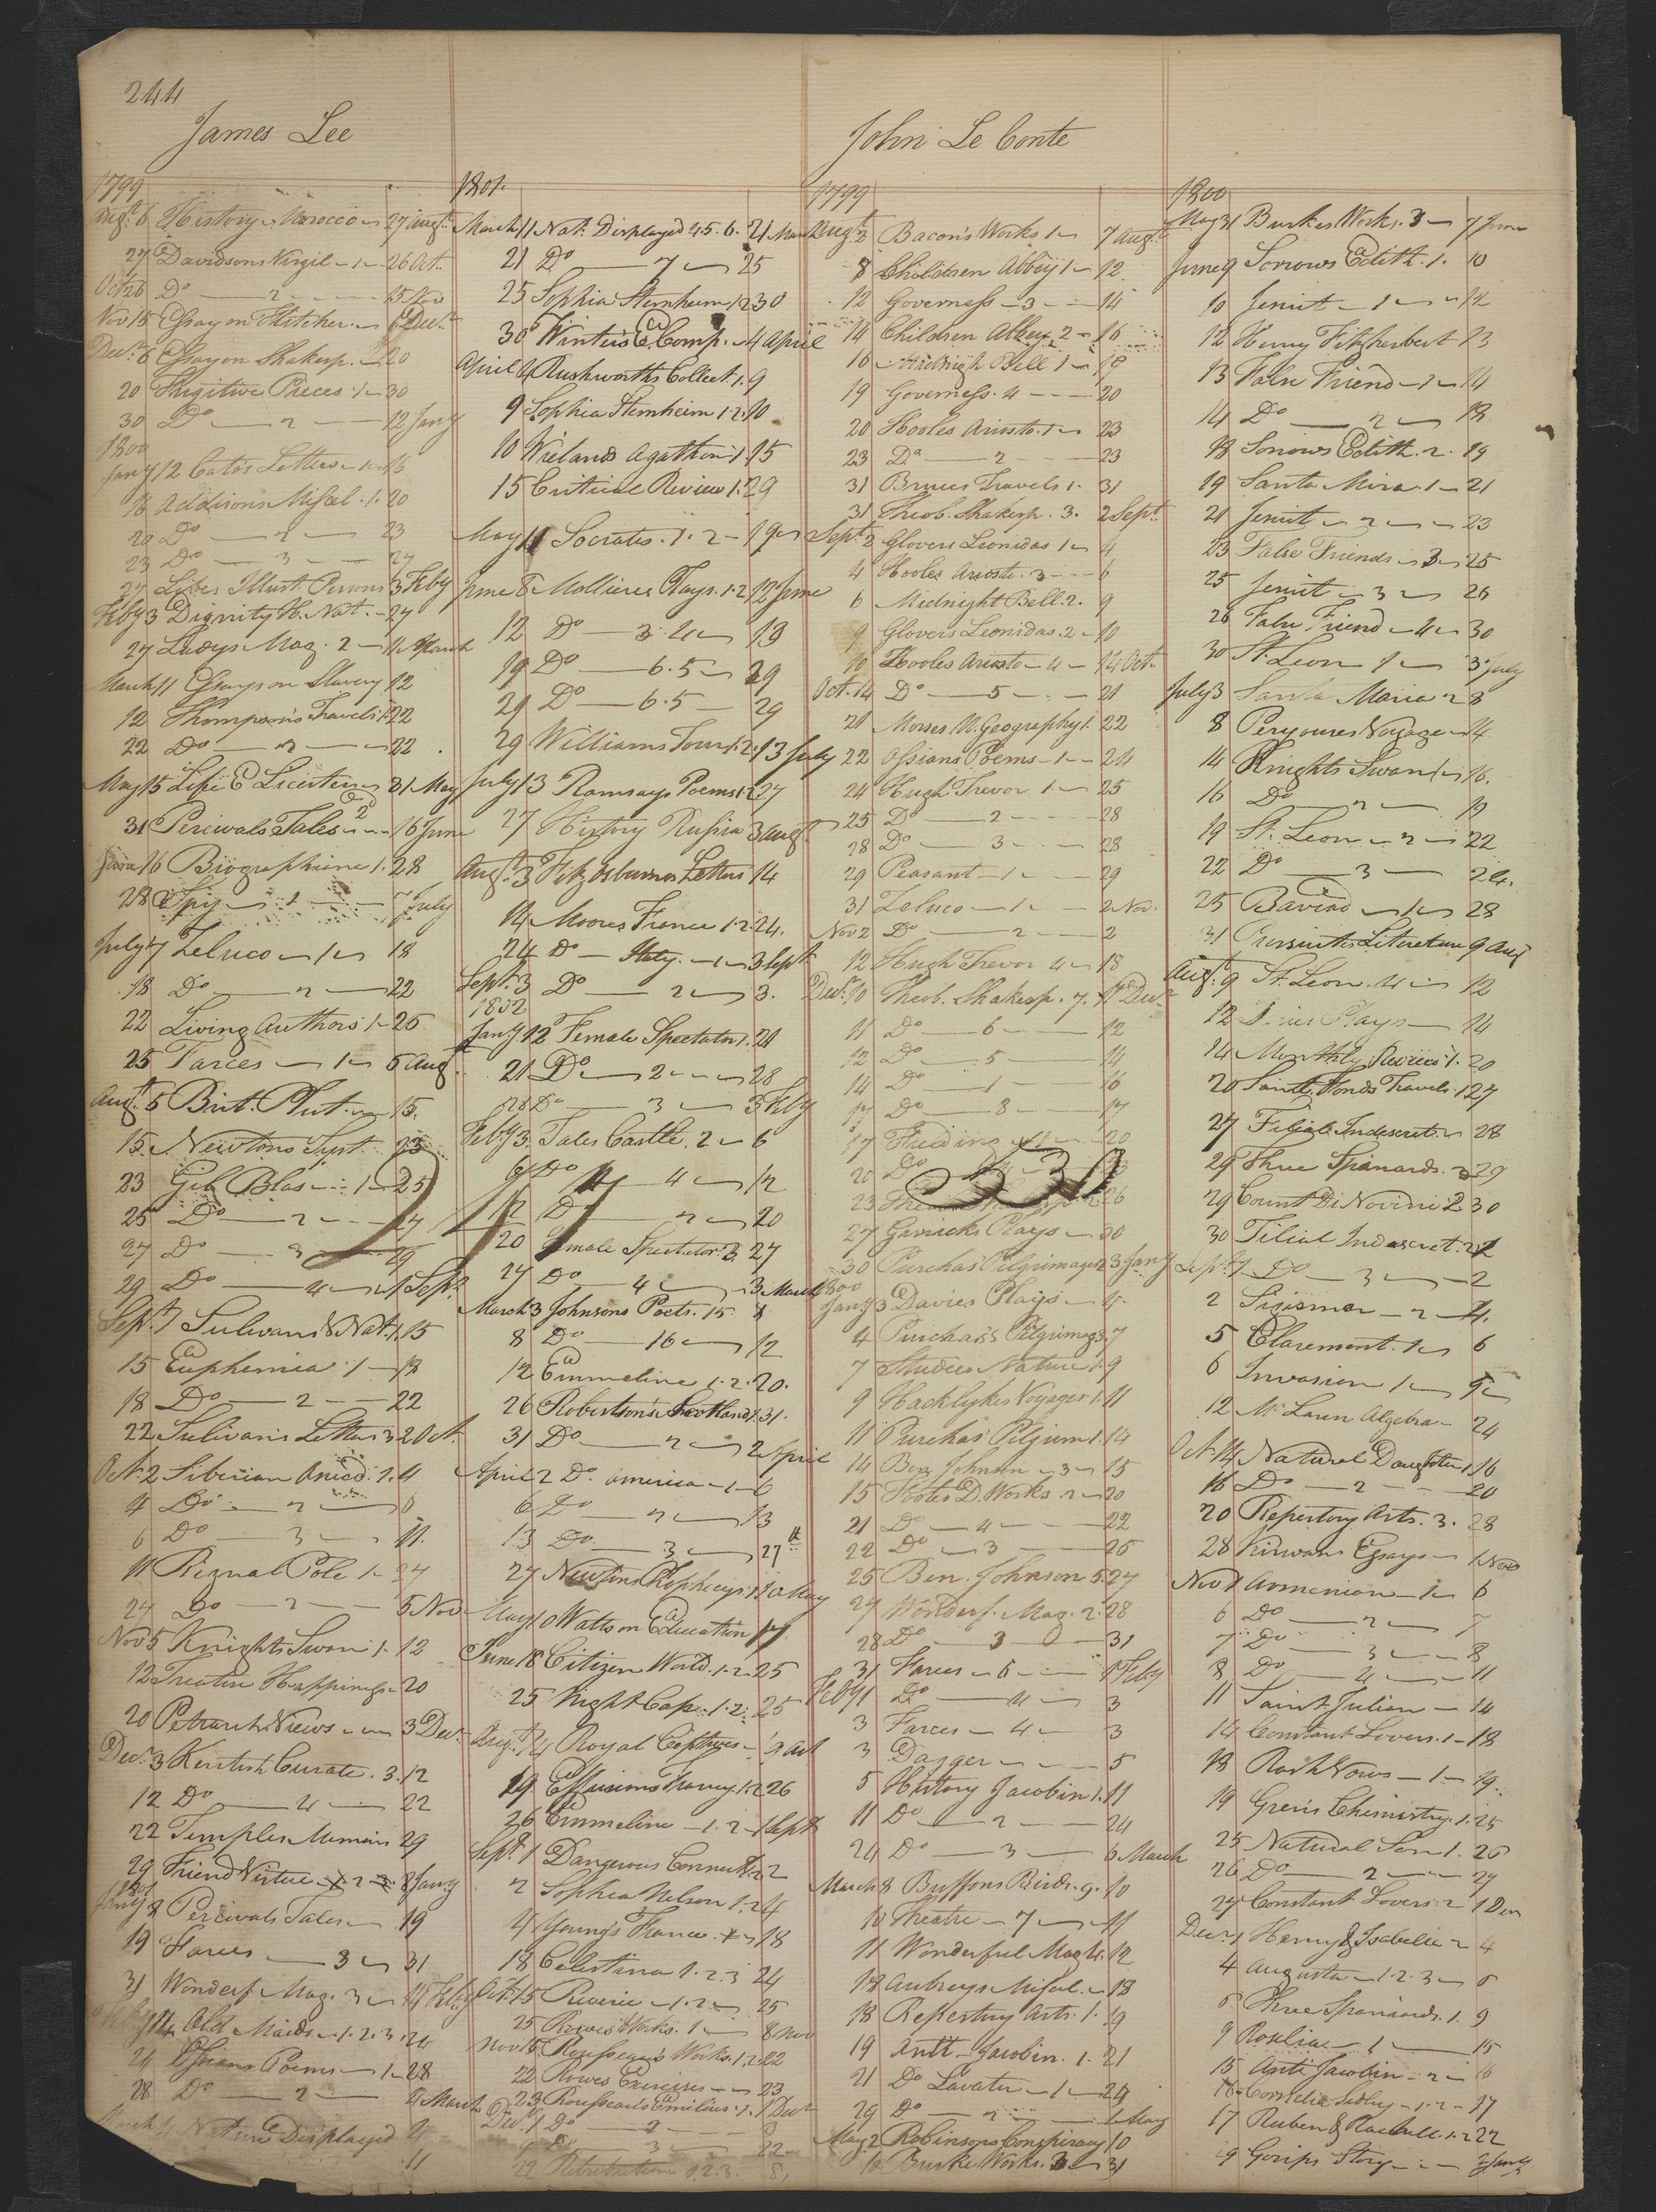 244
James Lee
1799
Augt. 6 History Morocco 27 Augt.
27 Davidsons Virgil 1 26 Oct.
Oct 26 Do 2 15 Nov
Nov 15 Essay on 6 Decr.
Decr. 6 Essay on Shakesp. 20
20 Fugitive Pieces 1 30
30 Do 2 12 Jany
1800
Jany 12 Catos Letters 1 16
16 Addisons Miscel. 1. 20
20 Do 2 23
23 Do 3 27
27 Lives Illust. Persons 3 Feby
Feby 3 Dignity H. Nat. 27
27 Ladys Mag. 2 11 March
March 11 Essays on Slavery 12
12 Thompson's Travels 1. 22
22 Do 2 22
May 15 Life E Licertern 31 May
31 Percivals Tales 2d 16 June
June 16 Biographiana 1. 28
28 Spy 1 7 July
July 7 Zeluco 1 18
18 Do 2 22
22 Living Authors 1 25
25 Farces 1 5 Aug
Augt. 5 Brit. Plut. 15.
15 Newtons Syst. 23
23 Gil Blas 1 25
25 Do 2 27
27 Do 3 29
29 Do 4 1 Sept.
Sept. 1 Sulivans Nat. 1. 15
15 Euphemia 1 18
18 Do 2 22
22 Sulivans Letters 3 2 Oct.
Oct. 2 Siberian Anecd. 1. 4
4 Do 2 6
6 Do 3 11.
11 Rignal Pole 1 24
24 Do 2 5 Nov
Nov 5 Knights Swan 1. 12
12 Treatise Happiness 20
20 Petrarchs Views 3 Decr.
Decr. 3 Kentish Curate. 3. 12
12 Do 4 22
22 Temples Memoirs 29
29 Friend Virtue 1. 2 8 Jany
1801
Jany 8 Percivals Tales 19
19 Farces 3 31
31 Wonderf Mag. 3 14 Feby
Feby 14 Old Maids 1. 2. 3. 24
24 Ossians Poems 1 28
28 Do 2 4 March
March 4 Nature Displayed
11
1801.
March 11 Nat. Displayed 4. 5. 6. 21 March
21 Do 7 25
25 Sophia Sternheim 1. 2 30
30 Winters E Comp. 4 April
April 4 Rushworths Collect. 1. 9
9 Sophia Sternheim 1. 2. 10
10 Wielands Agathon 1. 15
15 Critical Review 1. 29
May 11 Socrates. 1. 2 19
June 8 Mollieres Plays. 1. 2 12 June
12 Do 3. 4 19
19 Do 6. 5 29
29 Do 6. 5 29
29 Williams Tour 1. 2. 13 July
July 13 Ramsays Poems 1. 2 27
27 History Russia 3 Augt.
Augt. 3 Fitzosbornes Letters 14
14 Moores France 1. 2. 24.
24 Do Italy. 1 3 Sept.
Sept. 3 Do 2 3.
1802
Jany 12 Female Spectator 1. 21
21 Do 2 28
28 Do 3 3 Feby
Feby 3. Tales Castle. 2 6
6 Do 4 12
12 Do 2 20
20 Female Spectator 3. 27
27 Do 4 3 March
March 3 Johnsons Poets. 15. 8
8 Do 16 12
12 Emmeline 1. 2. 20.
26 Robertson's Scotland 1. 31.
31 Do 2 2 April
April 2 Do. America 1 6
6 Do 2 13
13 Do 3 27
27 Newtons Prophecys 1. 10 May
May 10 Watts on Education 17.
June 18 Citizen World. 1. 2. 25
25 Night Cap. 1. 2. 25
Augt. 4 Royal Captives 19 Aut
19 Effusions Fancy. 1. 2 26
26 Emmeline 1. 2 1 Sept
Sept. 1 Dangerous Connect. 1. 2 2
2 Sophia Nelson 1. 2 4
4 Youngs France. 18
18 Celestina 1. 2. 3 24
Oct. 15 Reverie 1. 2 25
25 Rowes Works. 1 8 Nov
Nov 15. Rousseau's Works. 1. 2. 22
22 Rowes Exercises 23
23 Rousseau's Emilius. 1. 1 Decr
Decr. 1 Do 2 9
9 Do 3 22
22 Retribution 1. 2. 3. 8.
John Le Conte
1799
Augt. 2 Bacon's Works 1 7 Augt.
8 Children Abbey 1 12
12 Governess 3 14
14 Children Abbey 2 16
16 Midnigh Bell 1 19
19 Governess. 4 20
20 Hooles Ariosto. 1 23
23 Do 2 23
31 Bruces Travels 1. 31
31 Theob. Shakesp. 3. 2 Sept.
Sept. 2 Glovers Leonidas 1 4
4 Hooles Ariosto. 3 6
6 Midnight Bell. 2. 9
9 Glovers Leonidas. 2 10
10 Hooles Ariosto 4 14 Oct.
Oct. 14 Do 5 21
21 Morses U. Geography 1. 22
22 Ossians Poems 1 24
24 Hugh Trevor 1 25
25 Do 2 28
28 Do 3 28
29 Peasant 1 29
31 Zeluco 1 2 Nov.
Nov 2 Do 2 2
12 Hugh Trevor 4 18
Decr. 10 Theob. Shakesp. 7. 11 Decr
11 Do 6 12
12 Do 5 14
14 Do 1 16
17 Do 8 17
17 Fielding 1 20
20 Do
530
23 26
27 Garricks Plays 30
30 Purchas' Pilgrimages 2 3 Jany
1800
Jany 3 Davies Plays 4.
4 Purchas's Pilgrimag. 3. 7
7 Studies Nature 1. 9
9 Hacklykes Voyages 1. 11
11 Purchas' Pilgrim 1. 14
14 Ben Johnson 3 15
15 Footes D. Works. 2 20
21 Do 4 22
22 Do 3 25
25 Ben. Johnson 5. 27
27 Wonderf. Mag. 2. 28
28 Do 3 31
31 Farces 6 1 Feby
Feby 1 Do 4 3
3 Farces 4 3
3 Dagger 5
5 History Jacobin 1. 11
11 Do 2 24
24 Do 3 6 March
March 8 Buffons Birds. 9. 10
10 Theatre 7 11
11 Wonderful Mag 4. 12
18 Aubreys Miscel. 18
18 Repertory Arts. 1. 19
19 Anti-Jacobin. 1. 21
21 Do Lavater 1 29
29 Do 2 2 May
May 2 Robinsons Conspiracy 10
10 Burke Works. 3 31
1800
May 31 Burkes Works. 3 7 June
June 9 Sorrows Edith. 1. 10
10 Jesuit 1 12
12 Henry Fitzherbert 13
13 False Friend 1 14
14 Do 2 18
18 Sorrows Edith. 2. 19
19 Santa Mira. 1 21
21 Jesuit 2 23
23 False Friends 3 25
25 Jesuit 3 26
26 False Friend 4 30
30 St. Leon 1 3 July
July 3 Santa Maria 2 8
8 Peryoures Voyage 14
14 Knights Swan 1 16.
16 Do 2 19
19 St. Leon 2 22
22 Do 3 24.
25 Bavino 1 28
31 Literature 9 Aug
Augt. 9 St. Leon. 4 12
12 Plays 14
14 Monthly Review 1. 20
20 Saint Fonds Travels. 1 27
27 Filial Indescret. 28
29 Three Spaniards. 3 29
29 Count Di Novini 2 30
30 Filial Indescret. 2
Sept. 1 Do 3 2
2 Sigismar 2 4.
5 Claremont. 1 6
6 Invasion 1 9
12 McLaren Algebra 24
Oct. 14 Natural Daughter 1. 16
16 Do 2 20
20 Repertory Arts. 3. 28
28 Kirwans Essays 1 Nov
Nov 1 Armenian 1 6
6 Do 2 7
7 Do 3 8
8 Do 4 11
11 Saint Julien 14
14 Constant Lovers. 1 18
18 Rash Vows 1 19.
19 Gren's Chemistry. 1. 25
25 Natural Son 1. 26
26 Do 2 27
27 Constant Lovers. 2 1 Decr
Decr. 1 Henry & Isabella 2 4
4 Augusta 1. 2. 3 6
6 Three Spaniards. 1. 9
9 Roselia 1 15
15 Anti Jacobin 2 16
16 Cornelia Sedley 1. 2 17
17 Reuben & Rachell. 1. 2 22
29 Gorips Story Jany